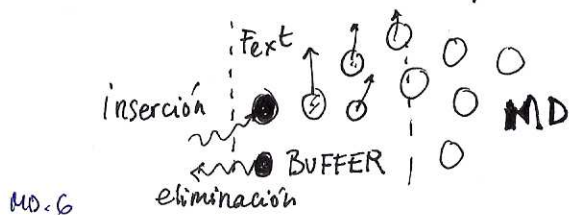 Fext
inserción
MD
BUFFER
eliminación
MD.6